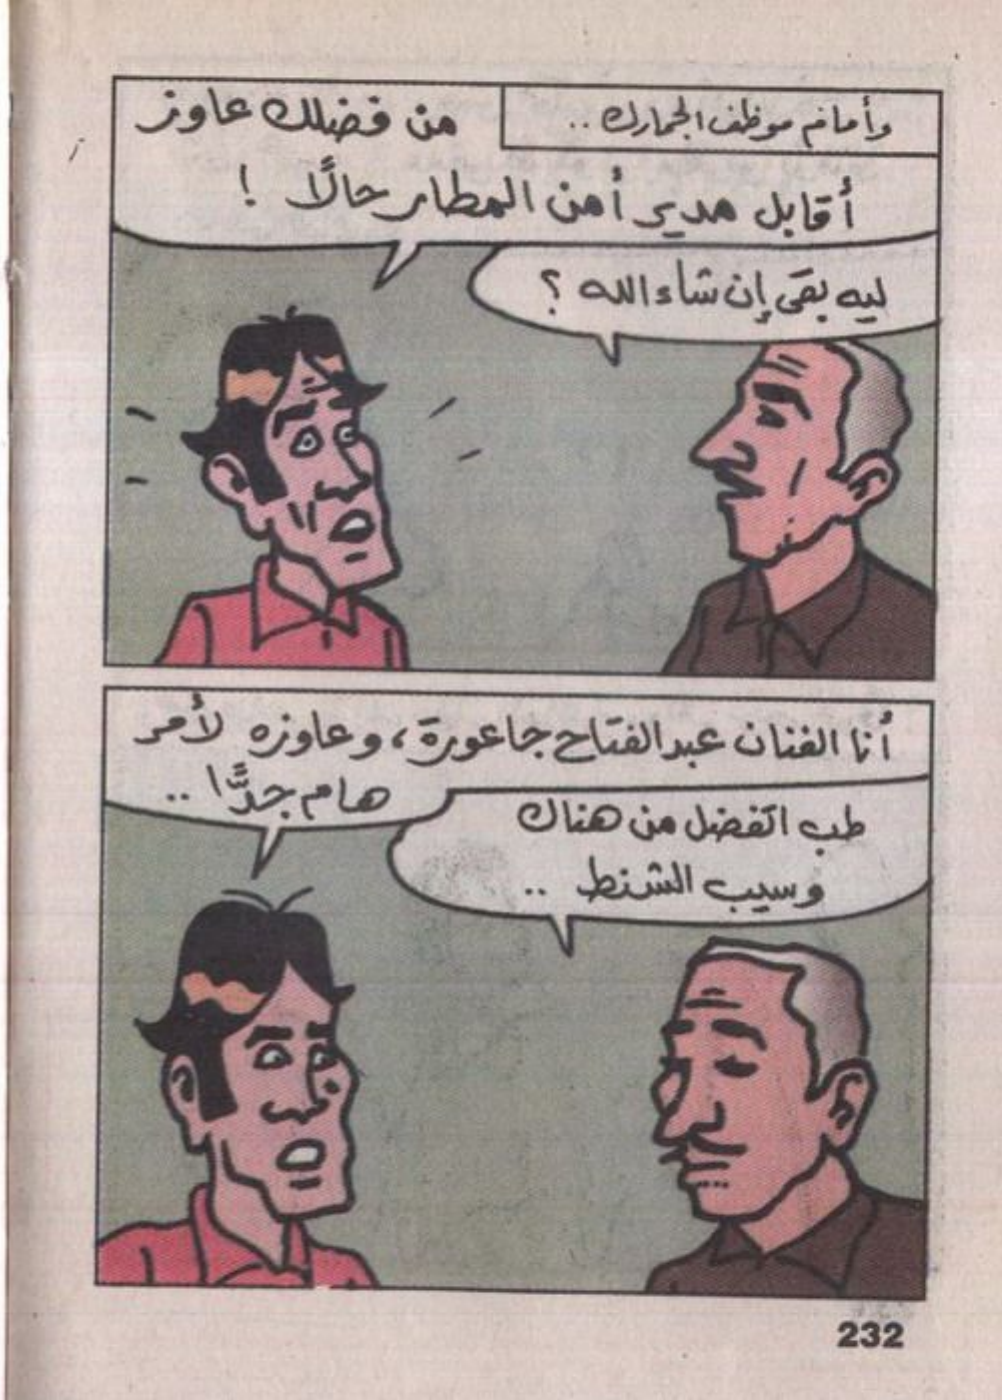 وأمام موظف الجمارك..
من فضلك عاوز
أقابل مدير أمن المطار حالًا !
ليه بقى إن شاء الله ؟
أنا الفنان عبد الفتاح جاعورة، وعاوزه لأمر
هام جدًّا ..
طب اتفضل من هناك
وسيب الشنط ..
232